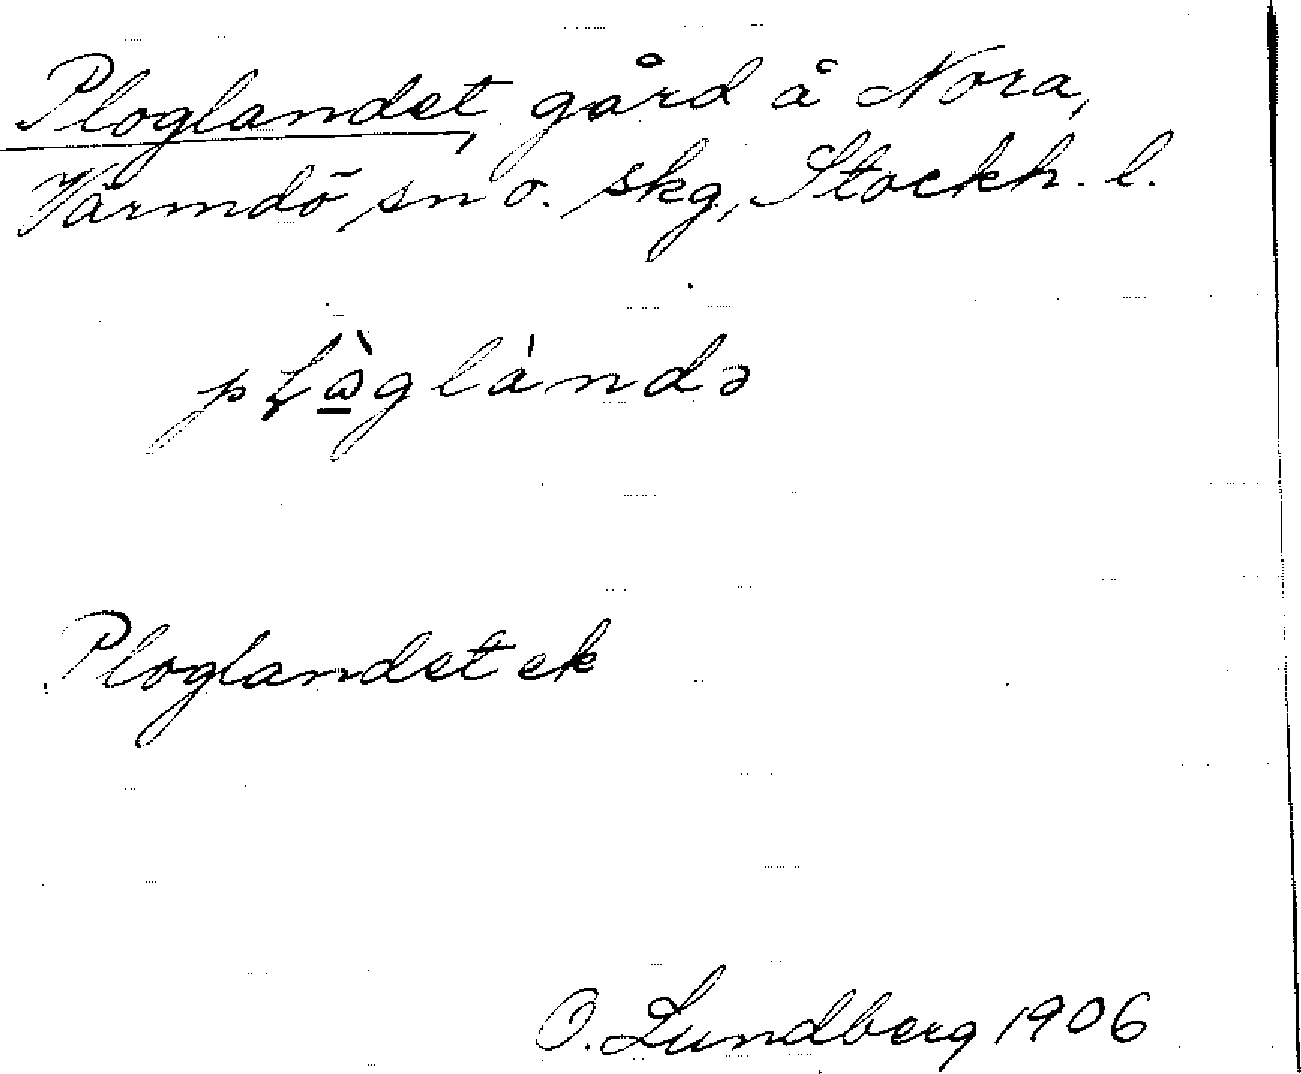 Ploglandet, gård å Nora,
Värmdö sn o. skg, Stockh. l.
pɫ<u>ὼ</u>glándə
Ploglandet ek
O. Lundberg 1906